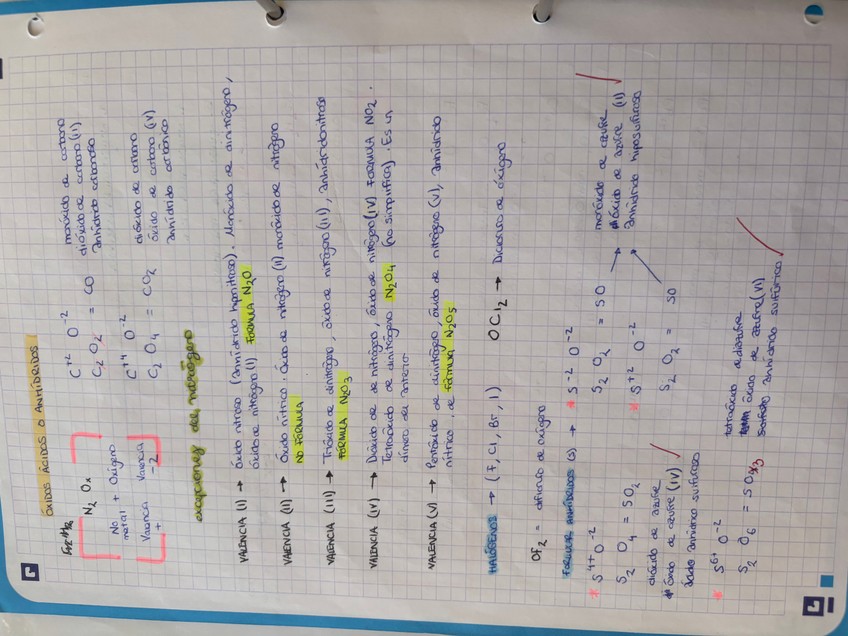 ÓXIDOS ÁCIDOS O ANHÍDRIDOS
N2 Ox
No metal + Oxígeno
Valencia + Valencia -2
C+2 O-2
C2 O2 = CO
monóxido de carbono
dióxido de carbono (II)
anhídrido carbonoso
C+4 O-2
C2 O4 = CO2
dióxido de carbono
óxido de carbono (V)
anhídrido carbónico
excepciones del nitrógeno
VALENCIA (I) → óxido nitroso (anhídrido hiponitroso). Monóxido de dinitrógeno,
óxido de nitrógeno (I) FORMULA N2O
VALENCIA (II) → Óxido nítrico. Óxido de nitrógeno (II) monóxido de nitrógeno
NO FORMULA
VALENCIA (III) → Trióxido de dinitrógeno, óxido de nitrógeno (III), anhídrido nitroso
FORMULA N2O3
VALENCIA (IV) → Dióxido de nitrógeno, óxido de nitrógeno (IV) FORMULA NO2.
Tetraóxido de dinitrógeno N2O4 (no simplifica). Es un
dímero de anterior
VALENCIA (V) → Pentóxido de dinitrógeno, óxido de nitrógeno (V), anhídrido
nítrico. de FÓRMULA N2O5
HALÓGENOS → (F, Cl, Br, I) OCl2 → Dicloruro de óxigeno
OF2 = difluoruro de oxígeno
FORMULAR ANHÍDRIDOS (S) →
* S-2 O-2
S2 O2 = SO
monóxido de azufre
óxido de azufre (II)
anhídrido hiposulfuroso
* S+2 O-2
S2 O2 = SO
* S4+ O-2
S2 O4 = SO2
dióxido de azufre
* óxido de azufre (IV)
anhídrido sulfuroso
* S6+ O-2
S2 O6 = SO3
óxido de azufre (VI)
anhídrido sulfúrico